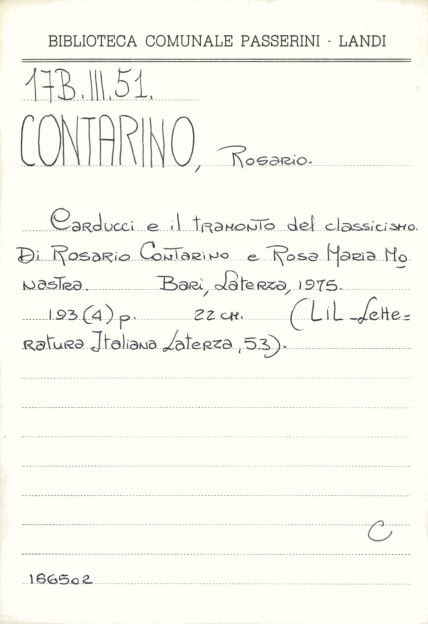 BIBLIOTECA COMUNALE PASSERINI - LANDI
17B.III.51.
CONTARINO, Rosario.
Carducci e il tramonto del classicismo.
Di Rosario Contarino e Rosa Maria Mo
nastra. Bari, Laterza, 1975.
193 (4) p. 22 cm. (LIL - Lette=
ratura Italiana Laterza, 53).
C
186502